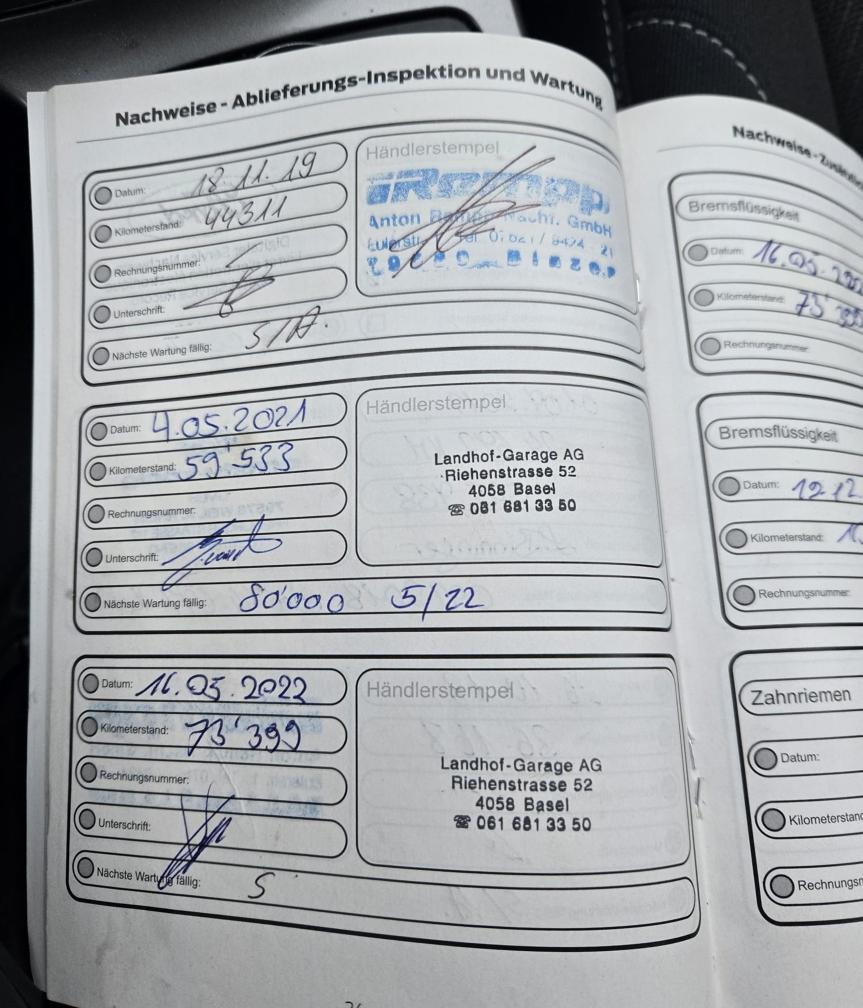 Nachweise - Ablieferungs-Inspektion und Wartung
Datum: 18.11.19
Kilometerstand: 44311
Rechnungsnummer:
Unterschrift:
Nächste Wartung fällig: S/A.
Händlerstempel
Rampp
Anton Nachf. GmbH
Datum: 4.05.2021
Kilometerstand: 59'533
Rechnungsnummer:
Unterschrift:
Nächste Wartung fällig: 80'000 5/22
Händlerstempel
Landhof-Garage AG
Riehenstrasse 52
4058 Basel
☎ 061 681 33 50
Datum: 16.05.2022
Kilometerstand: 73'399
Rechnungsnummer:
Unterschrift:
Nächste Wartung fällig: S
Händlerstempel
Landhof-Garage AG
Riehenstrasse 52
4058 Basel
☎ 061 681 33 50
Nachweise -
Bremsflüssigkeit
Datum: 16.05.
Kilometerstand: 73'
Rechnungsnummer:
Bremsflüssigkeit
Datum: 19.12
Kilometerstand:
Rechnungsnummer:
Zahnriemen
Datum:
Kilometerstan
Rechnungsn